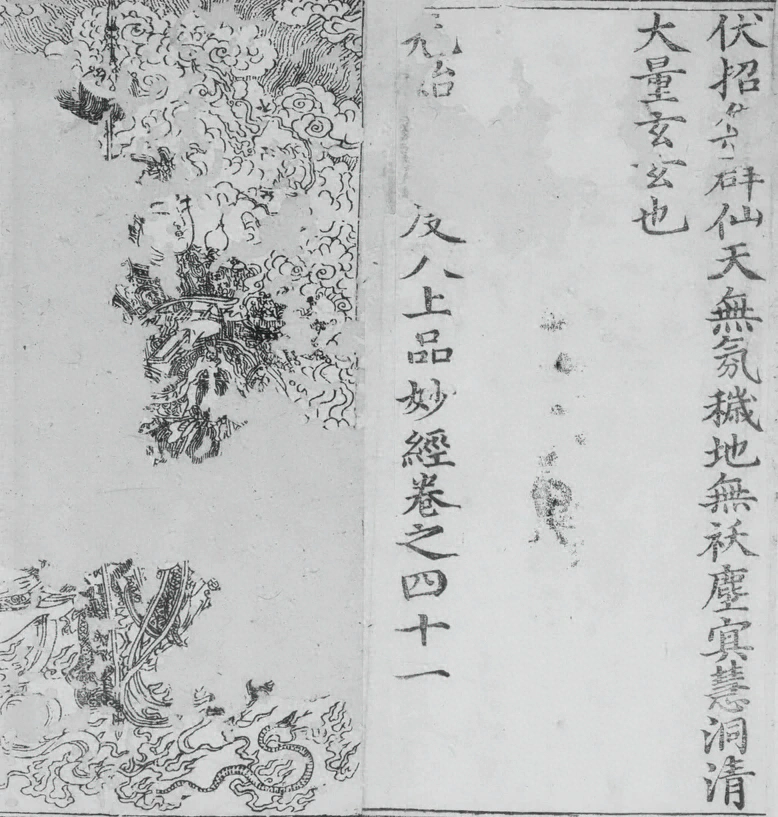 伏招群仙天無氛穢地無祅塵冥慧洞清
大量玄玄也
元始度人上品妙經卷之四十一